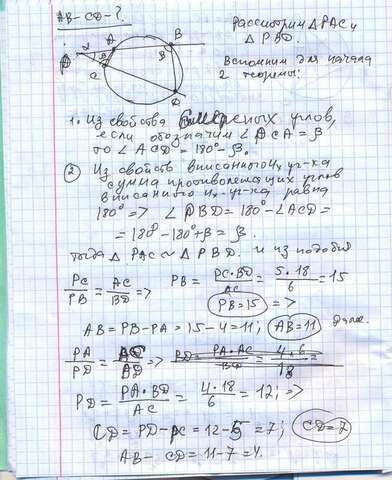 AB - CD - ?
Рассмотрим ΔPAC и
ΔPBD.
Вспомним для начала
2 теоремы:
P A B C D α β β
1. Из свойства смежных углов,
если обозначим ∠PCA = β
то ∠ACD = 180° - β.
2 Из свойств вписанного 4х уг-ка
сумма противолежащих углов
вписанного 4х-уг-ка равна
180° => ∠PBD = 180° - ∠ACD =
= 180° - 180° + β = β.
тогда ΔPAC ~ ΔPBD. и из подобия
PC/PB = AC/BD => PB = PC·BD/AC = 5·18/6 = 15
PB = 15 =>
AB = PB - PA = 15 - 4 = 11; AB = 11 далее.
PA/PD = AC/BD => PD = PA·AC/BD = 4·6/18
PD = PA·BD/AC = 4·18/6 = 12; =>
CD = PD - PC = 12 - 5 = 7; CD = 7
AB - CD = 11 - 7 = 4.